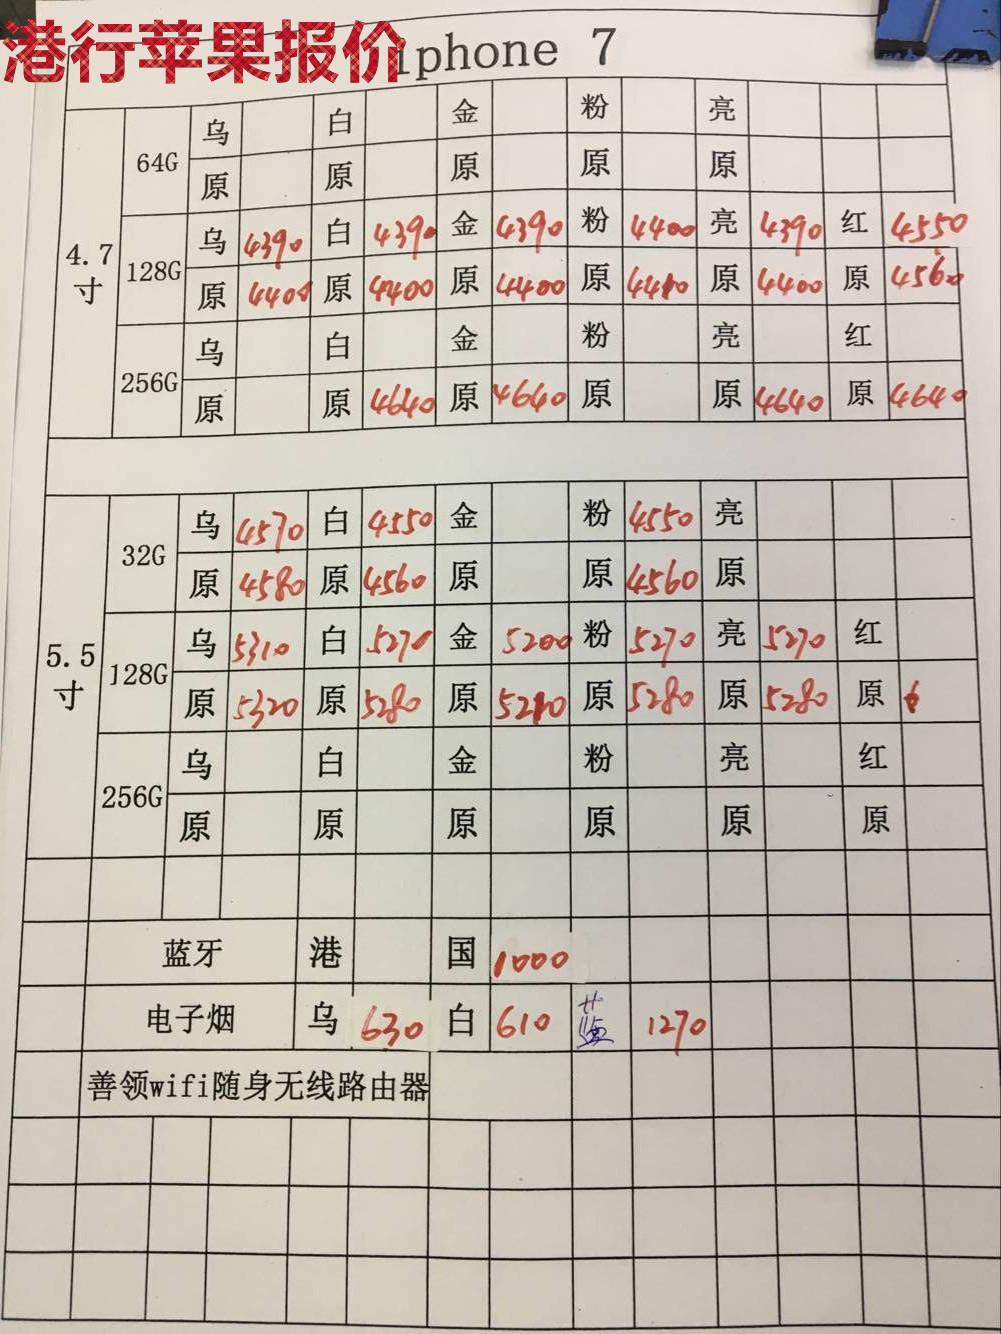 港行苹果报价
iphone 7
4.7寸
64G 乌 白 金 粉 亮
原 原 原 原 原
128G 乌 4390 白 4390 金 4390 粉 4400 亮 4390 红 4550
原 4400 原 4400 原 4400 原 4410 原 4400 原 4560
256G 乌 白 金 粉 亮 红
原 原 4640 原 4640 原 原 4640 原 4640
5.5寸
32G 乌 4570 白 4550 金 粉 4550 亮
原 4580 原 4560 原 原 4560 原
128G 乌 5310 白 5270 金 5200 粉 5270 亮 5270 红
原 5320 原 5280 原 5210 原 5280 原 5280 原
256G 乌 白 金 粉 亮 红
原 原 原 原 原 原
蓝牙 港 国 1000
电子烟 乌 630 白 610 蓝 1270
善领wifi随身无线路由器